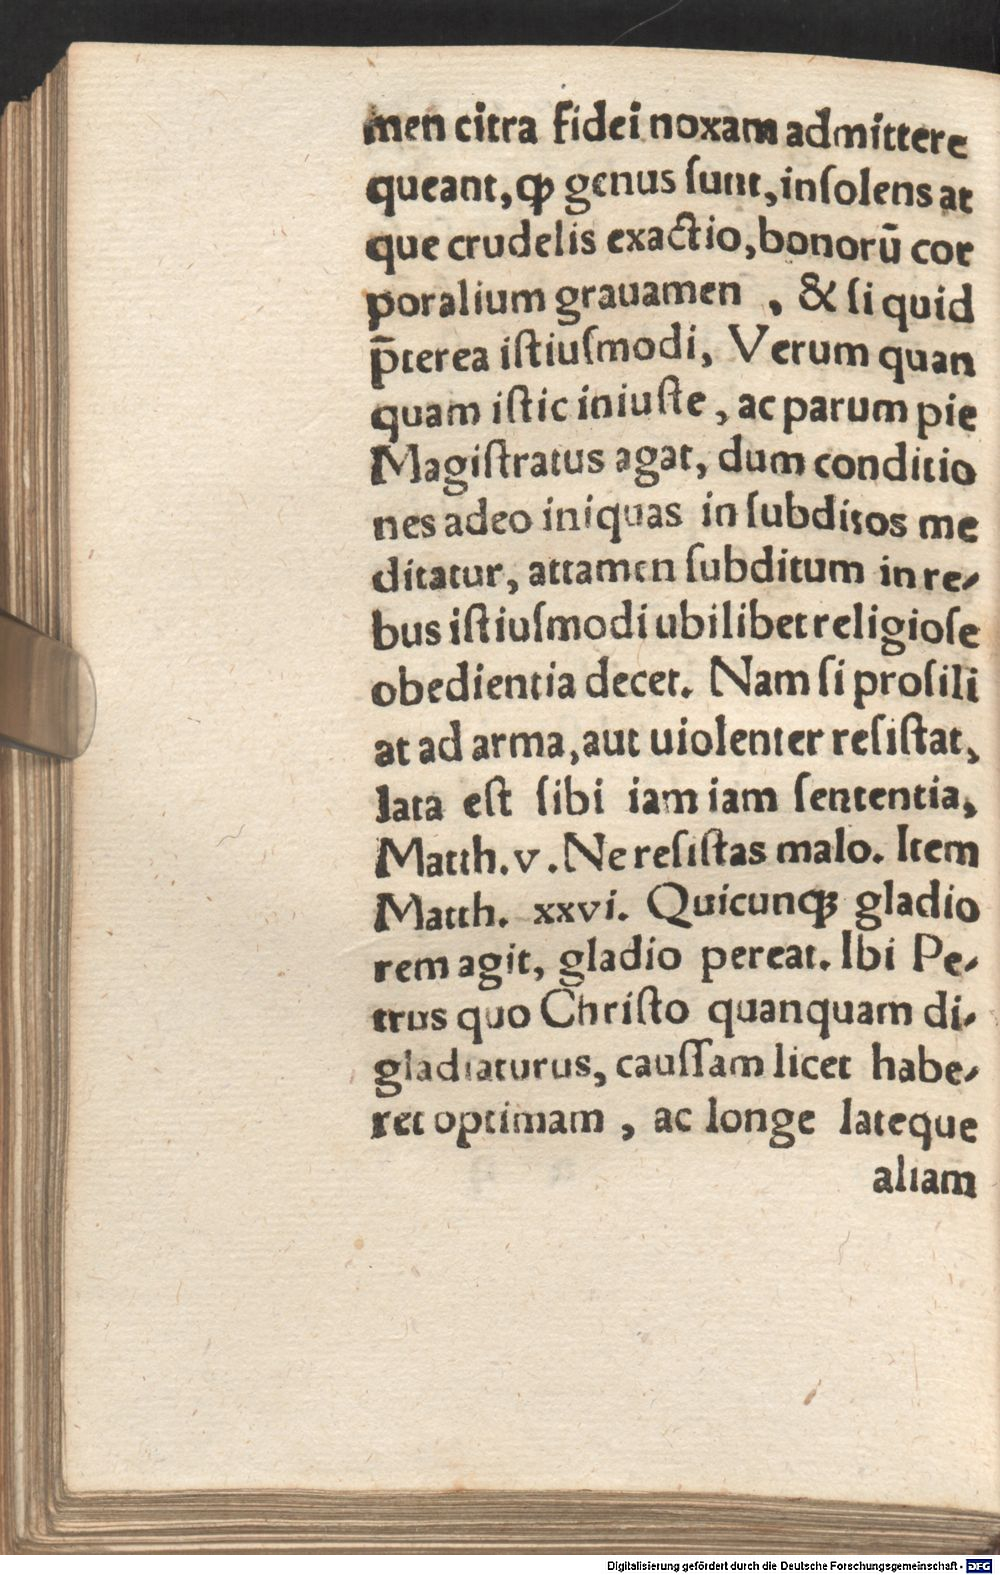 men citra fidei noxam admittere
queant, ꝙ genus ſunt, inſolens at
que crudelis exactio, bonorū cor
poralium grauamen , & ſi quid
p̄terea iſtiuſmodi, Verum quan
quam iſtic iniuſte, ac parum pie
Magiſtratus agat, dum conditio
nes adeo iniquas in ſubditos me
ditatur, attamen ſubditum in re⸗
bus iſtiuſmodi ubilibet religioſe
obedientia decet. Nam ſi proſili
at ad arma, aut uiolenter reſiſtat,
lata eſt ſibi iam iam ſententia,
Matth. v. Ne reſiſtas malo. Item
Matth. xxvi. Quicunqꝫ gladio
rem agit, gladio pereat. Ibi Pe⸗
trus quo Chriſto quanquam di⸗
gladiaturus, cauſſam licet habe⸗
ret optimam , ac longe lateque
aliam
Digitalisierung gefördert durch die Deutsche Forschungsgemeinschaft - DFG